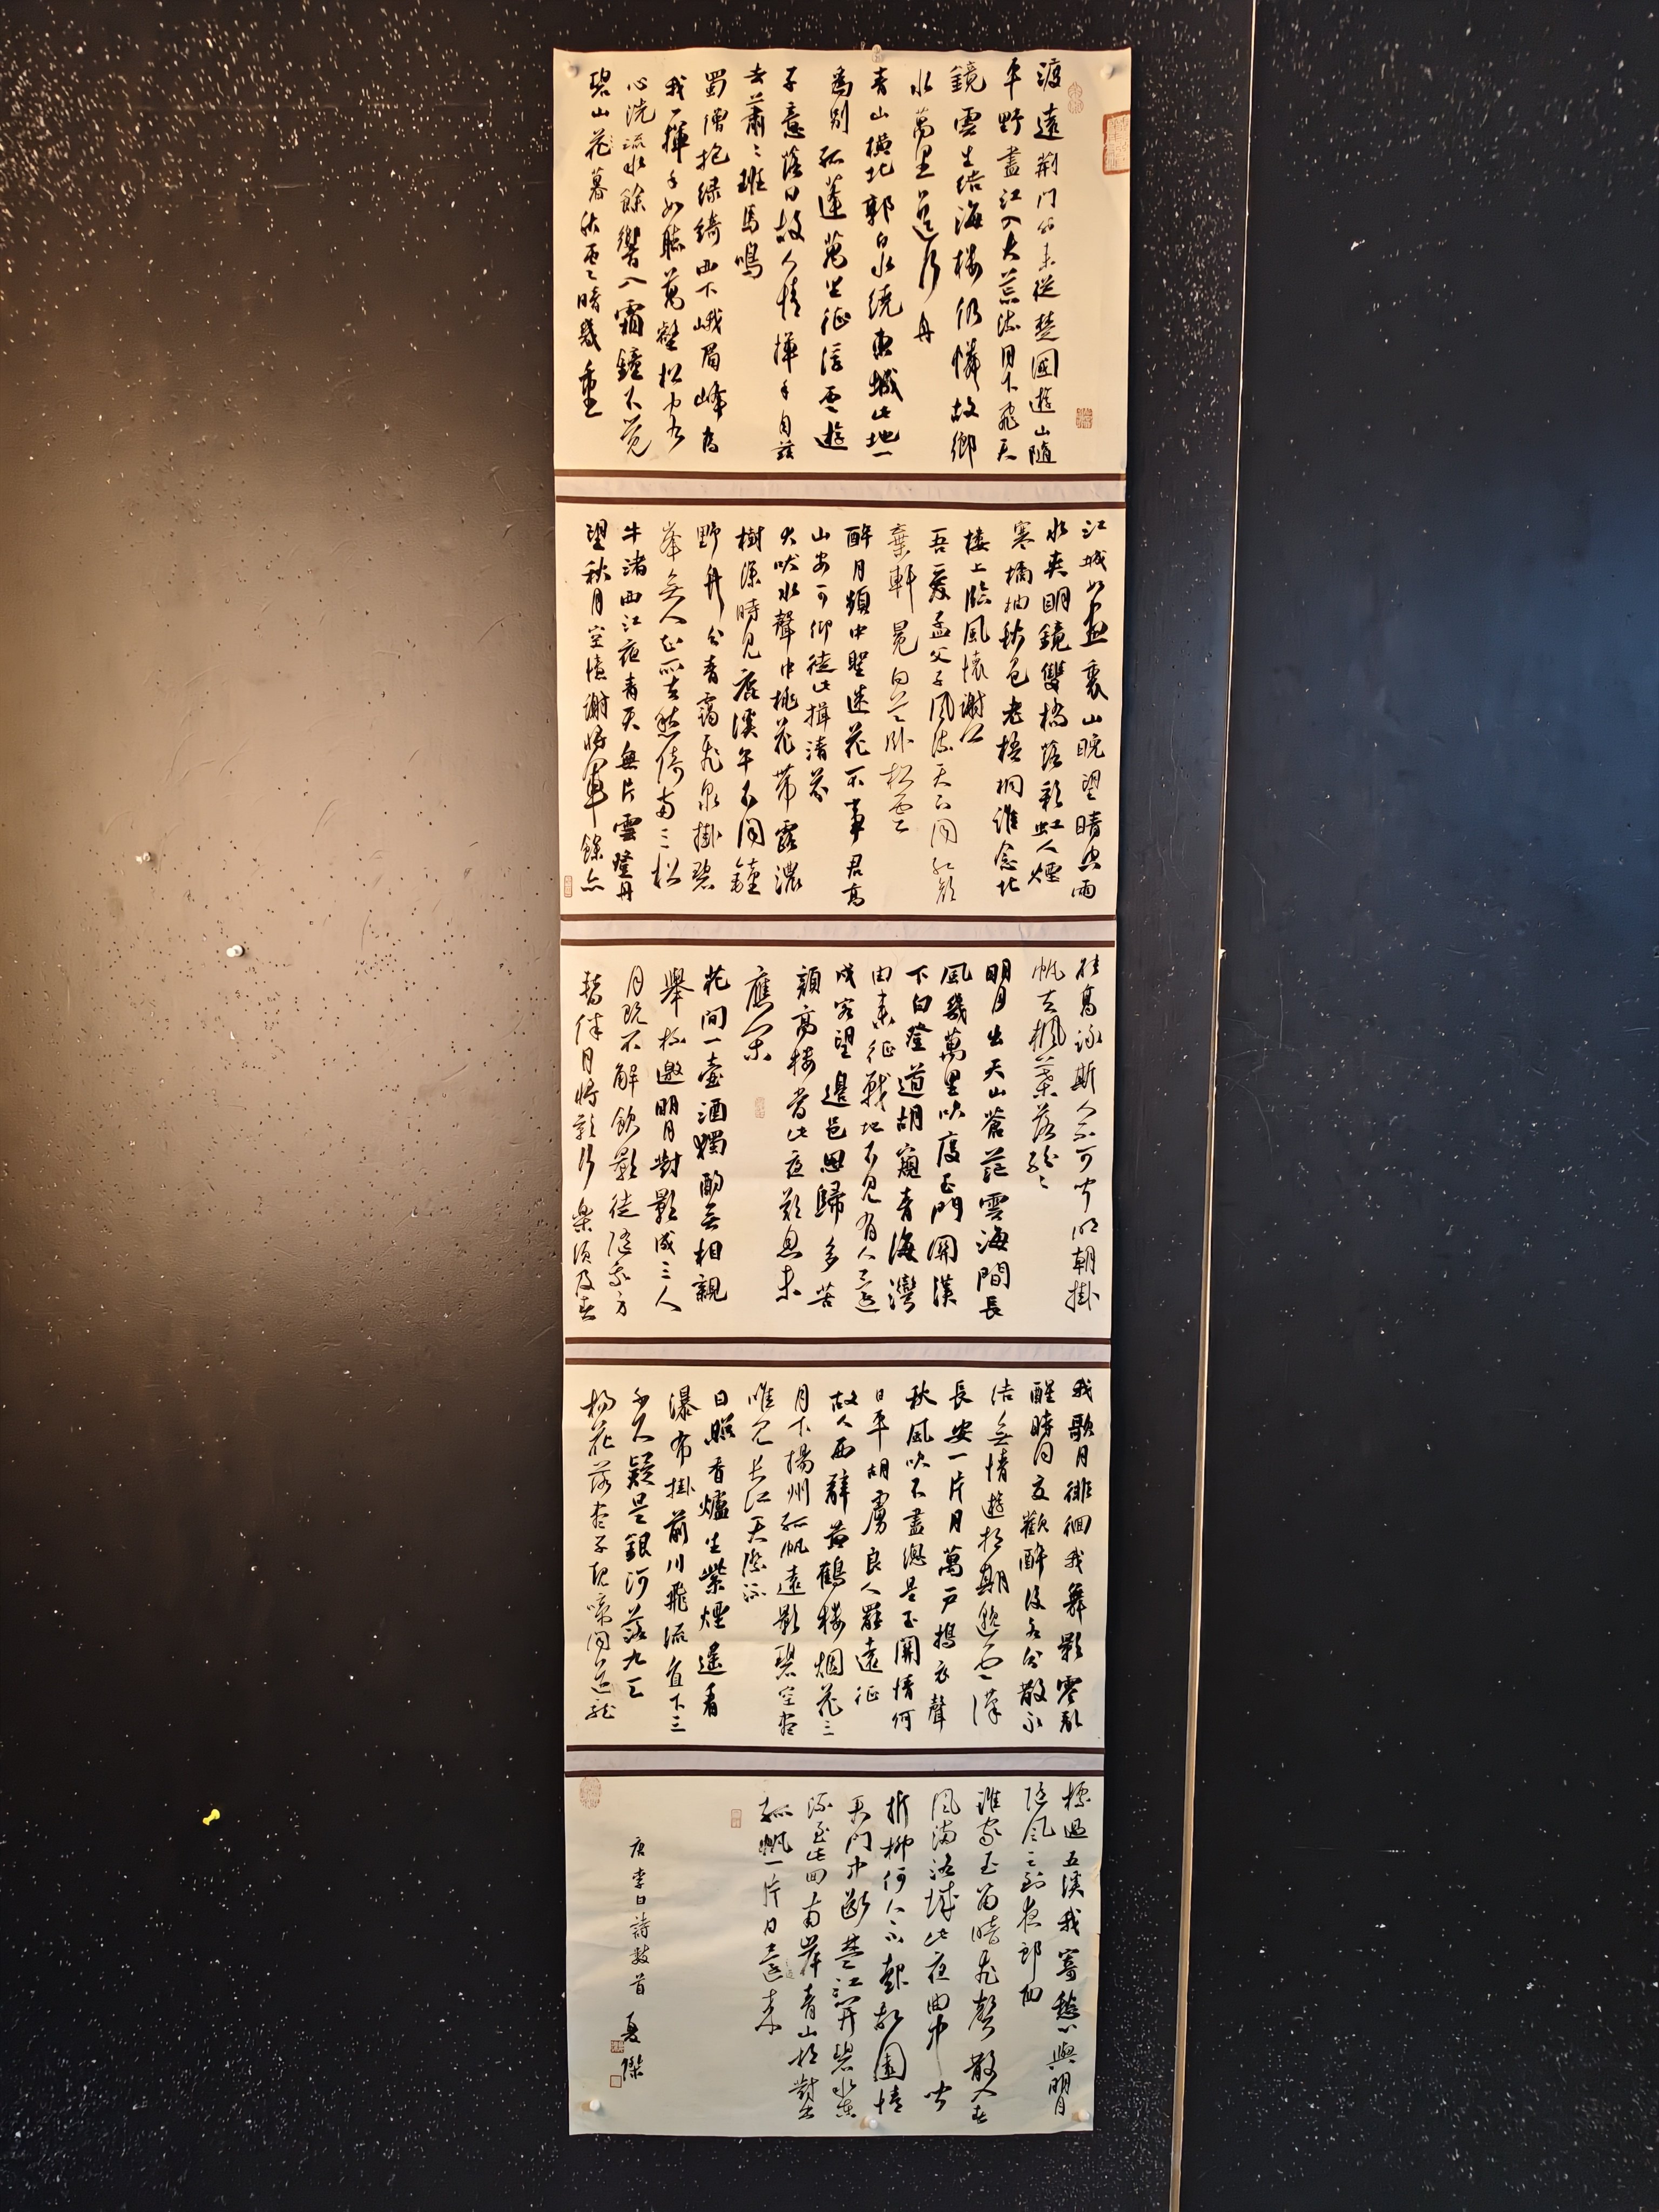 渡遠荆門外來從楚國遊山隨
平野盡江入大荒流月下飛天
鏡雲生結海樓仍憐故鄉
水萬里送行舟
青山橫北郭白水繞東城此地一
為別孤蓬萬里征浮雲遊
子意落日故人情揮手自茲
去蕭〻班馬鳴
蜀僧抱綠綺西下峨眉峰為
我一揮手如聽萬壑松客
心洗流水餘響入霜鐘不覺
碧山花暮秋雲暗幾重
江城如畫裏山晚望晴空雨
水夾明鏡雙橋落彩虹人煙
寒橘柚秋色老梧桐誰念北
樓上臨風懷謝公
吾愛孟夫子風流天下聞紅顏
棄軒冕白首臥松雲
醉月頻中聖迷花不事君高
山安可仰徒此揖清芬
犬吠水聲中桃花帶露濃
樹深時見鹿溪午不聞鐘
野竹分青靄飛泉掛碧
峯無人知所去愁倚兩三松
牛渚西江夜青天無片雲登舟
望秋月空憶謝將軍餘亦
能高詠斯人不可聞明朝掛
帆去楓葉落紛〻
明月出天山蒼茫雲海間長
風幾萬里吹度玉門關漢
下白登道胡窺青海灣
由來征戰地不見有人還
戍客望邊邑思歸多苦
顏高樓當此夜歎息未
應閑
花間一壺酒獨酌無相親
舉杯邀明月對影成三人
月既不解飲影徒隨我身
暫伴月將影行樂須及春
我歌月徘徊我舞影零亂
醒時同交歡醉後各分散永
結無情遊相期邈雲漢
長安一片月萬戶搗衣聲
秋風吹不盡總是玉關情何
日平胡虜良人罷遠征
故人西辭黃鶴樓烟花三
月下揚州孤帆遠影碧空盡
唯見長江天際流
日照香爐生紫煙遙看
瀑布掛前川飛流直下三
千尺疑是銀河落九天
楊花落盡子規啼聞道龍
標過五溪我寄愁心與明月
隨風直到夜郎西
誰家玉笛暗飛聲散入春
風滿洛城此夜曲中聞
折柳何人不起故園情
天門中斷楚江開碧水東
流至此回兩岸青山相對出
孤帆一片日邊來
唐李白詩數首 夏傑